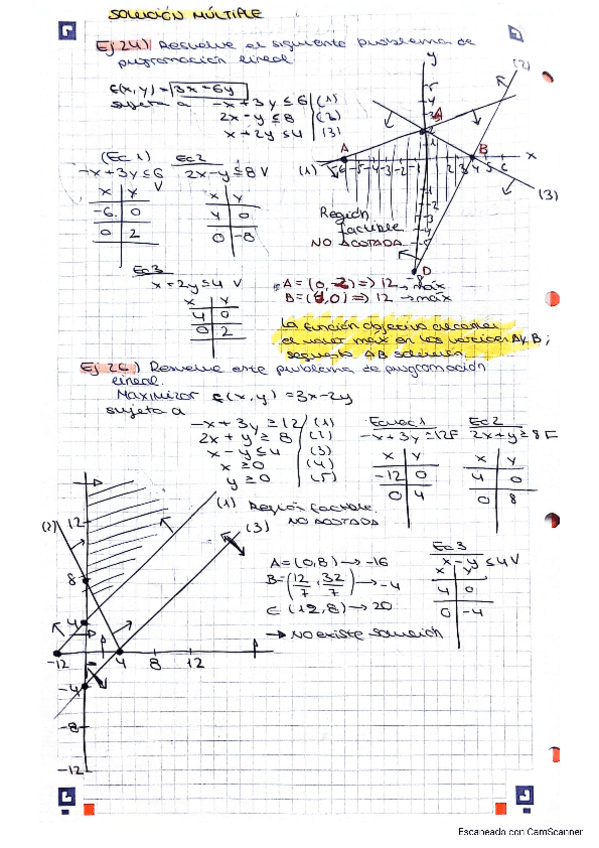 SOLUCIÓN MÚLTIPLE
Ej 24) Resuelve el siguiente problema de
programación lineal
f(x,y) = 3x - 6y
sujeta a -x + 3y ≤ 6 (1)
2x - y ≤ 8 (2)
x + 2y ≤ 4 (3)
(Ec 1) Ec2
-x + 3y ≤ 6 V 2x - y ≤ 8 V
x y x y
-6 0 4 0
0 2 0 -8
Ec3
x = 2y ≤ 4 V
x y
4 0
0 2
y
(2)
A
A
B
x
(1)
(3)
Región
factible
NO ACOTADA
D
-8
A = (0,-2) => 12 → máx
B = (4,0) => 12 → máx
La función objetivo alcanza
el valor máx en los vértices A y B;
segmento AB solución
Ej 26) Resuelve este problema de programación
lineal.
Maximizar f(x,y) = 3x - 2y
sujeta a
-x + 3y ≥ 12 (1)
2x + y ≥ 8 (2)
x - y ≤ 4 (3)
x ≥ 0 (4)
y ≥ 0 (5)
Ecuac 1 Ec2
-x + 3y = 12 F 2x + y ≥ 8 F
x y x y
-12 0 4 0
0 4 0 8
(1) Región factible
NO ACOTADA
(2)
(3)
12
8
4
-12 4 8 12
-4
-8
-12
A = (0,8) → -16
B = (12/7, 32/7) → -4
C (12,8) → 20
→ No existe solución
Ec3
x - y ≤ 4 V
x y
4 0
0 -4
Escaneado con CamScanner